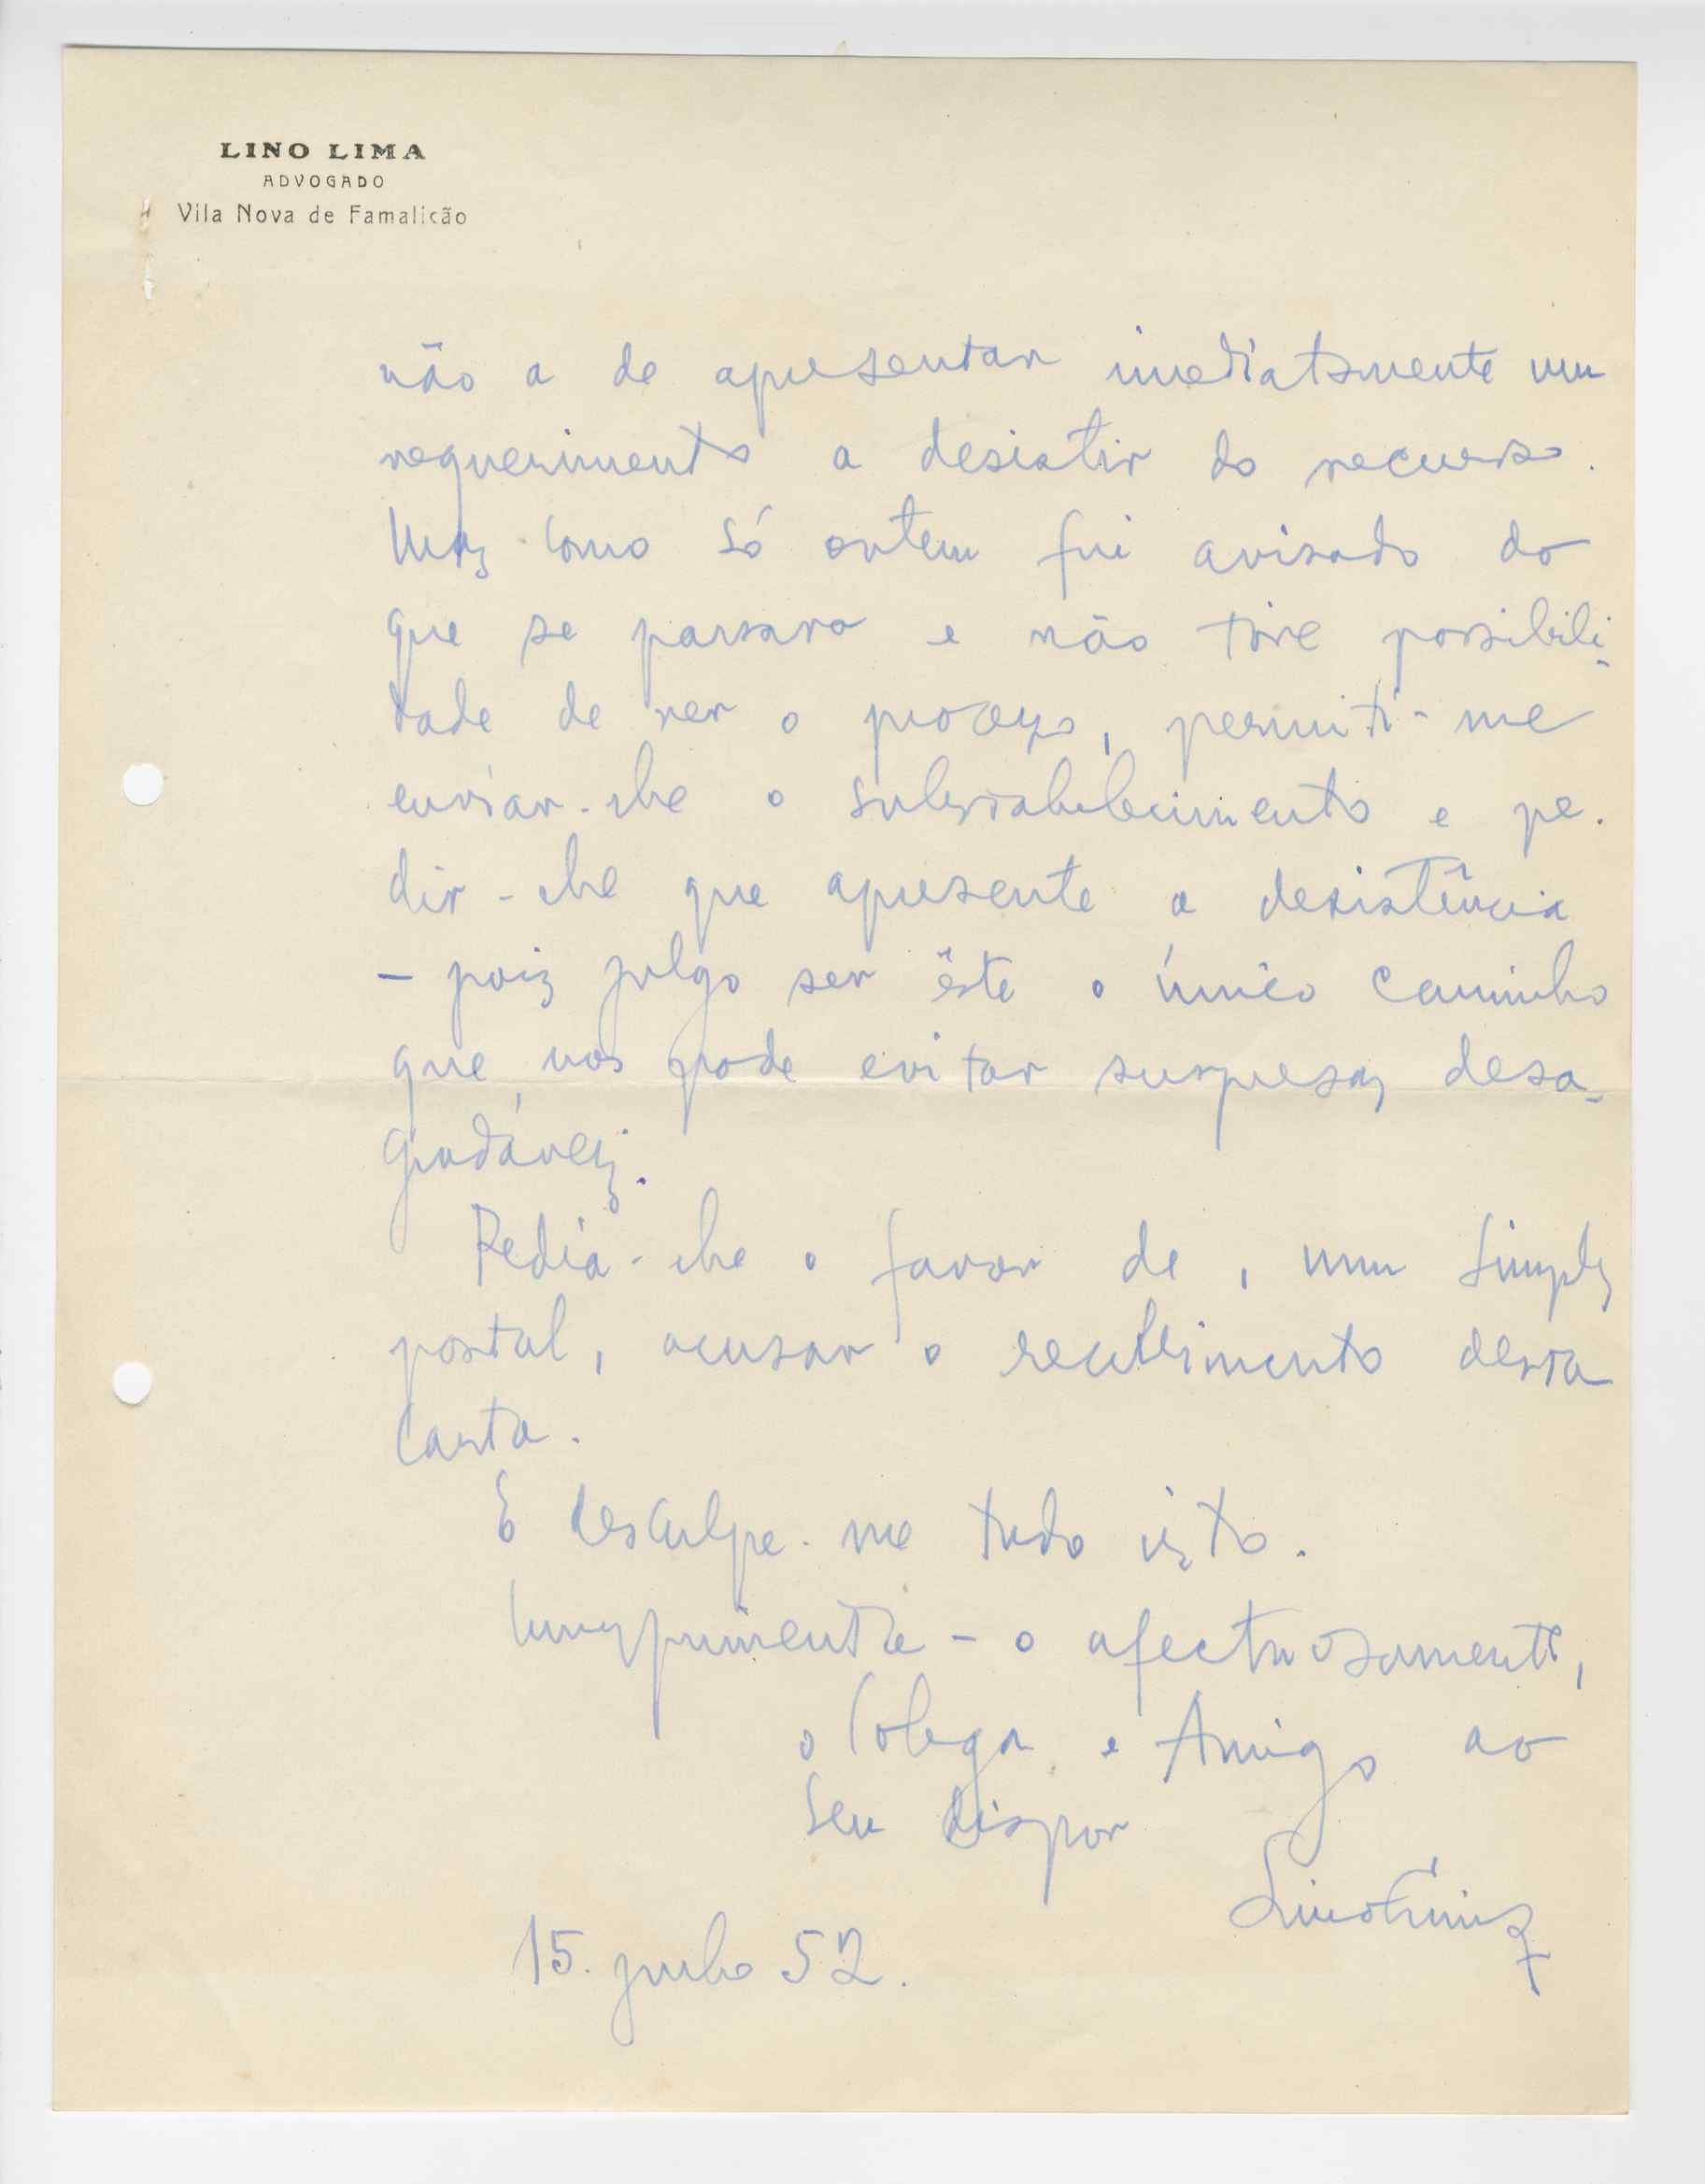 LINO LIMA
ADVOGADO
Vila Nova de Famalicão
não a de apresentar imediatamente um
requerimento a desistir do recurso.
Mas como só ontem fui avisado do
que se passava e não tive possibili-
dade de ver o processo, permiti-me
enviar-lhe o substabelecimento e pe-
dir-lhe que apresente a desistência
- pois julgo ser êste o único caminho
que nos pode evitar surpresas desa-
gradáveis.
Pedia-lhe o favor de, num simples
postal, acusar o recebimento desta
carta.
E desculpe-me tudo isto.
Cumprimenta-o afectuosamente,
o Colega e Amigo ao
seu dispor
Lino Lima
15. julho 52.